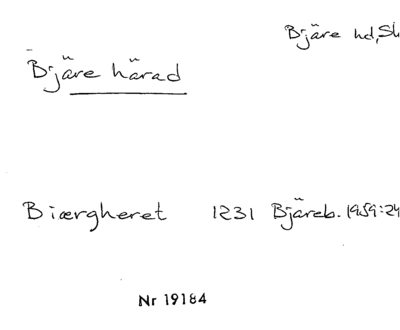 Bjäre hd, Sk
Bjäre härad
Biærgheret 1231 Bjäreb. 1959:24
Nr 19184